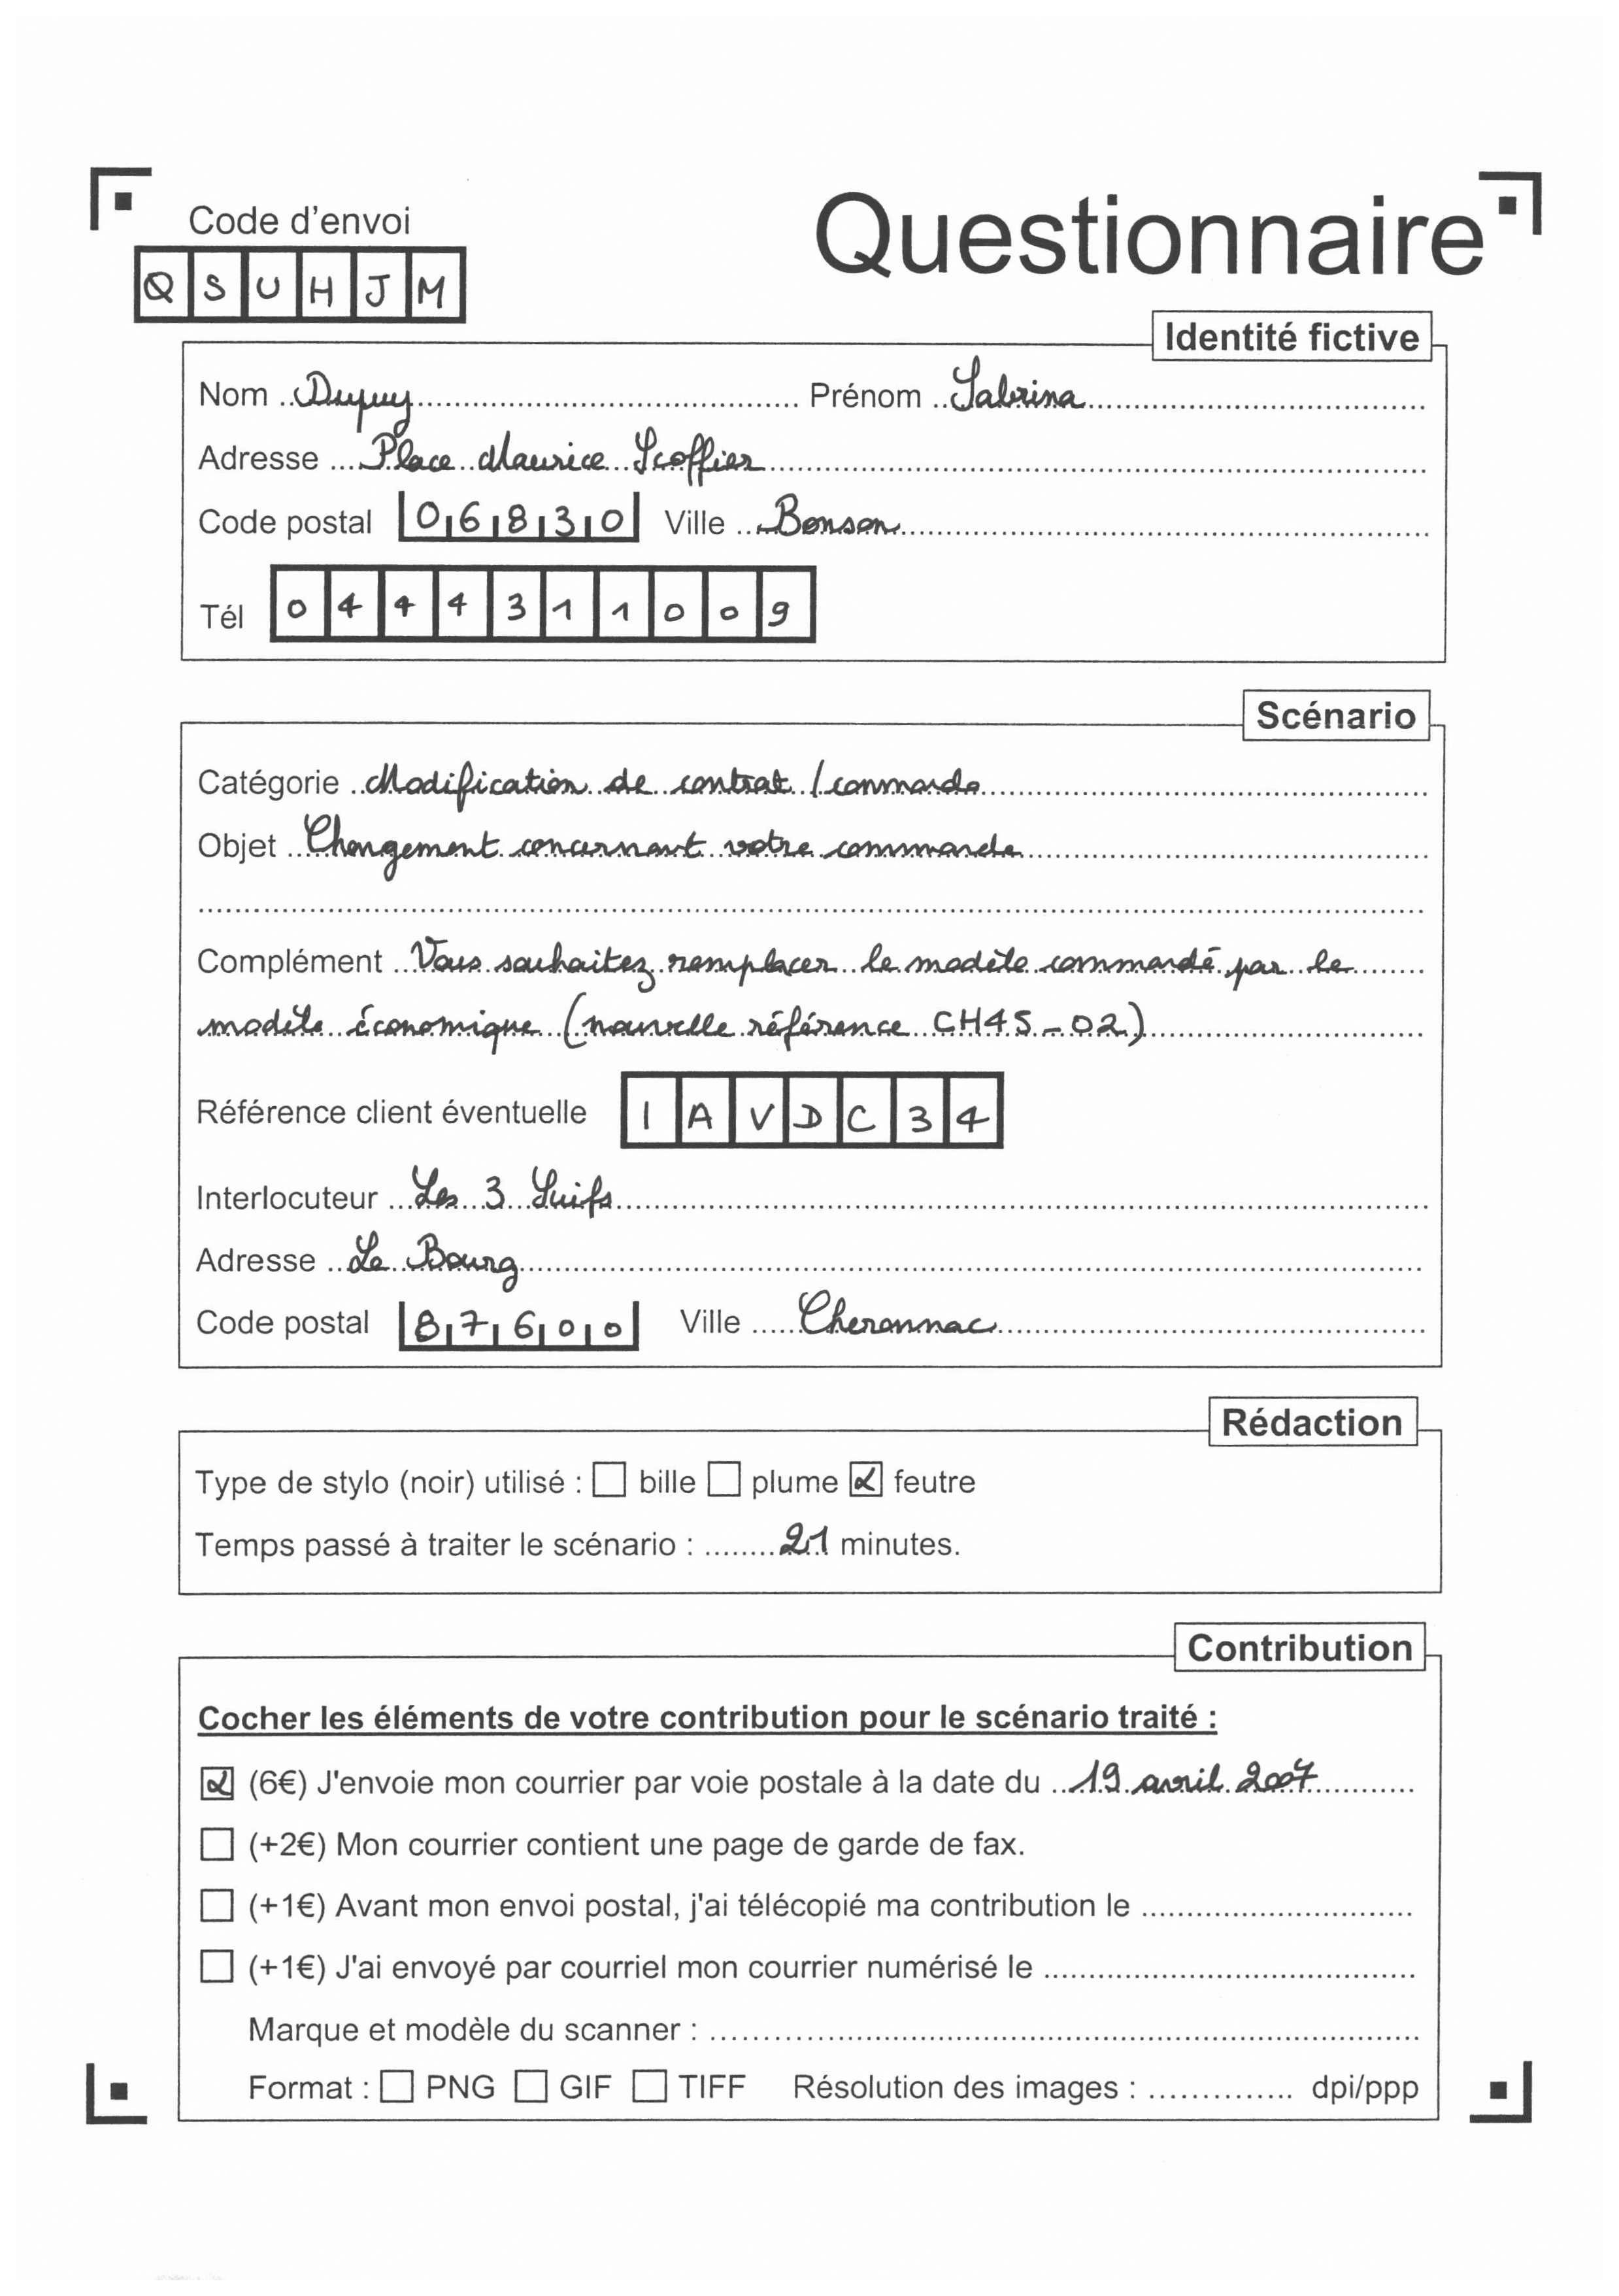 Code d'envoi
QSUHJM
Questionnaire
Identité fictive
Nom Dupuy Prénom Sabrina
Adresse Place Maurice Scoffier
Code postal 06830 Ville Bonson
Tél 0444311009
Scénario
Catégorie Modification de contrat / commande
Objet Changement concernant votre commande
Complément Vous souhaitez remplacer le modèle commandé par le
modèle économique (nouvelle référence CH45-02)
Référence client éventuelle IAVDC34
Interlocuteur Les 3 Suifs
Adresse Le Bourg
Code postal 87600 Ville Cheronnac
Rédaction
Type de stylo (noir) utilisé : ☐ bille ☐ plume ☒ feutre
Temps passé à traiter le scénario : 21 minutes.
Contribution
Cocher les éléments de votre contribution pour le scénario traité :
☒ (6€) J'envoie mon courrier par voie postale à la date du 19 avril 2007
☐ (+2€) Mon courrier contient une page de garde de fax.
☐ (+1€) Avant mon envoi postal, j'ai télécopié ma contribution le
☐ (+1€) J'ai envoyé par courriel mon courrier numérisé le
Marque et modèle du scanner :
Format : ☐ PNG ☐ GIF ☐ TIFF Résolution des images : dpi/ppp